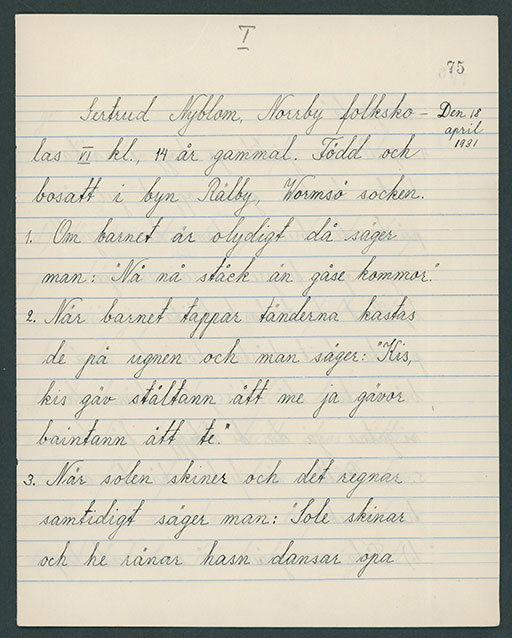 I
75
Gertrud Nyblom, Norrby folksko-
Den 18
april
1931
las VI kl., 14 år gammal. Född och
bosatt i byn Rälby, Wormsö socken.
1. Om barnet är olydigt då säger
man: "Nå nå stäck än gåse kommor."
2. När barnet tappar tänderna kastas
de på ugnen och man säger: "Kis,
kis gäv ståltann ått me ja gävor
baintann ått te."
3. När solen skiner och det regnar
samtidigt säger man: "Sole skinar
och he ränar hasn dansar opa